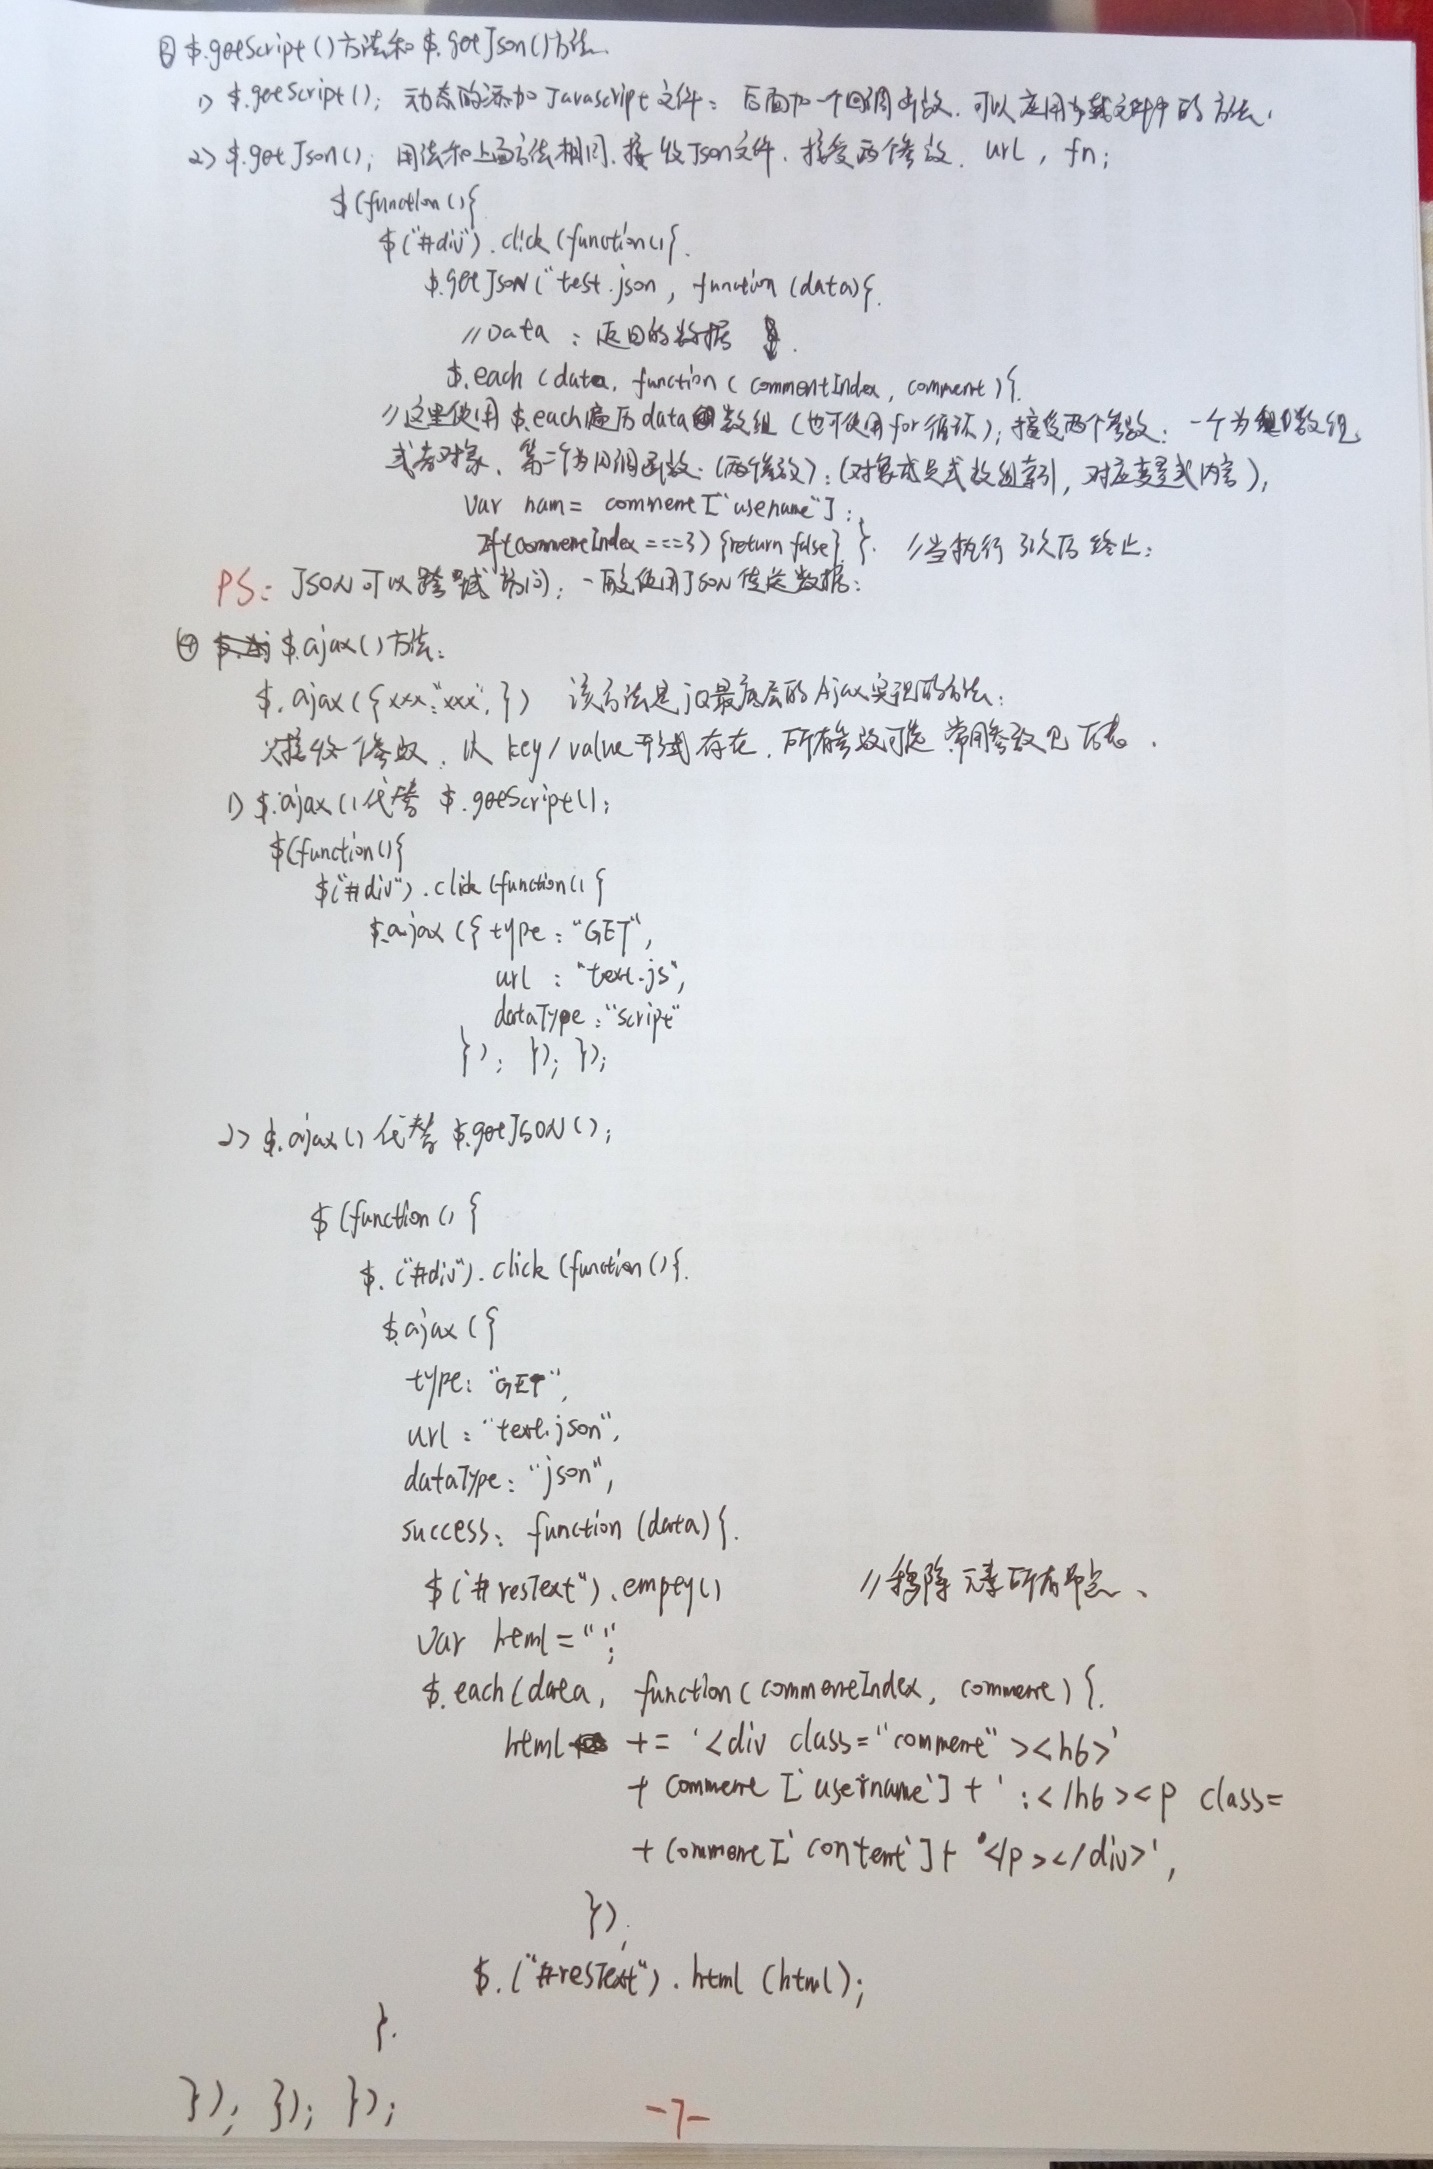 ③ $.getScript()方法和 $.getJson()方法.
1> $.getScript(); 动态的添加 Javascript 文件; 后面加一个回调函数. 可以应用加载文件中的方法.
2> $.getJson(); 用法和上面方法相同. 接收Json文件. 接受两个参数. url, fn;
$(function(){
$("#div").click(function(){.
$.getJSON("test.json, function (data){.
//Data : 返回的数据 .
$.each (data, function ( commentIndex, comment ){.
//这里使用 $.each遍历data数组 (也可使用for循环); 接受两个参数: 一个为数组
或者对象. 第二个为回调函数. (两个参数): (对象成员或数组索引, 对应变量或内容),
Var nam= comment["usename"];
If(commentIndex===3){return false} }. //当执行 3次后终止;
PS: JSON可以跨域访问; 一般使用JSON传送数据;
④ $.ajax()方法:
$.ajax({xxx:"xxx",}) 该方法是jQ最底层的Ajax实现的方法;
只接收1个参数, 以 key/value 形式存在. 所有参数可选 常用参数见 后表.
1> $.ajax()代替 $.getScript();
$(function(){
$("#div").click(function(){
$.ajax({ type: "GET",
url : "text.js",
dataType: "script"
}); }); });
2> $.ajax()代替 $.getJSON();
$(function(){
$.("#div").click(function(){.
$.ajax({
type: "GET",
url : "text.json",
dataType: "json",
success: function (data){.
$("#resText").empty() //移除元素所有节点、
Var html="";
$.each(data, function(commentIndex, comment){.
html += '<div class="comment"><h6>'
+ comment['username']+':</h6><p class=
+ comment['content']+'</p></div>',
});
$.("#resText").html(html);
}.
}); }); });
-7-